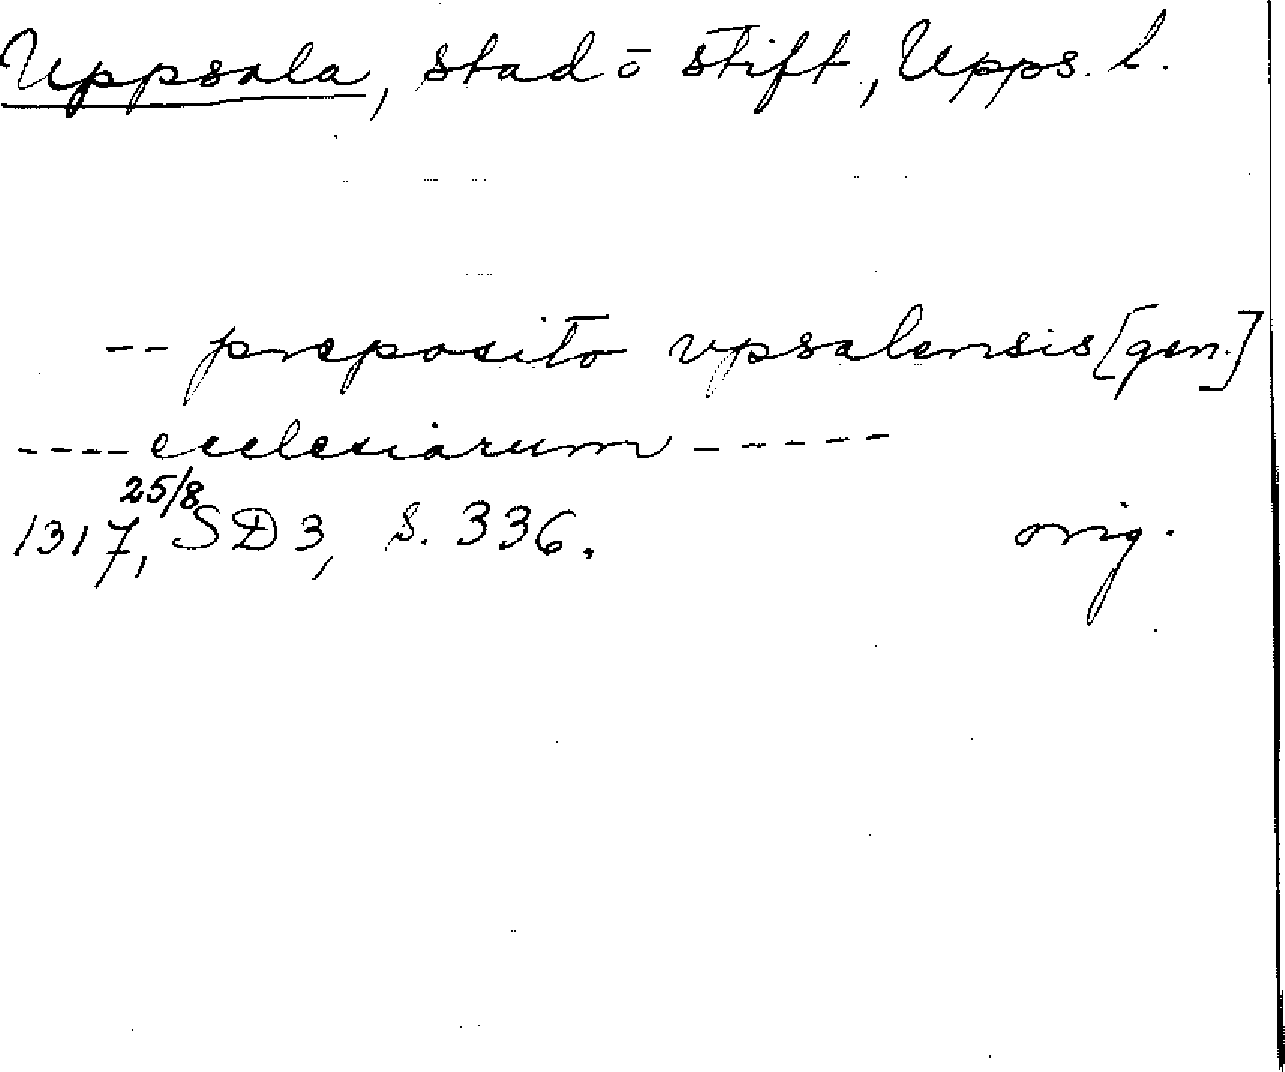 Uppsala, stad o stift, Upps. l.
-- preposito vpsalensis [gen.]
---- ecclesiarum -----
1317, 25/8 SD 3, s. 336. orig.